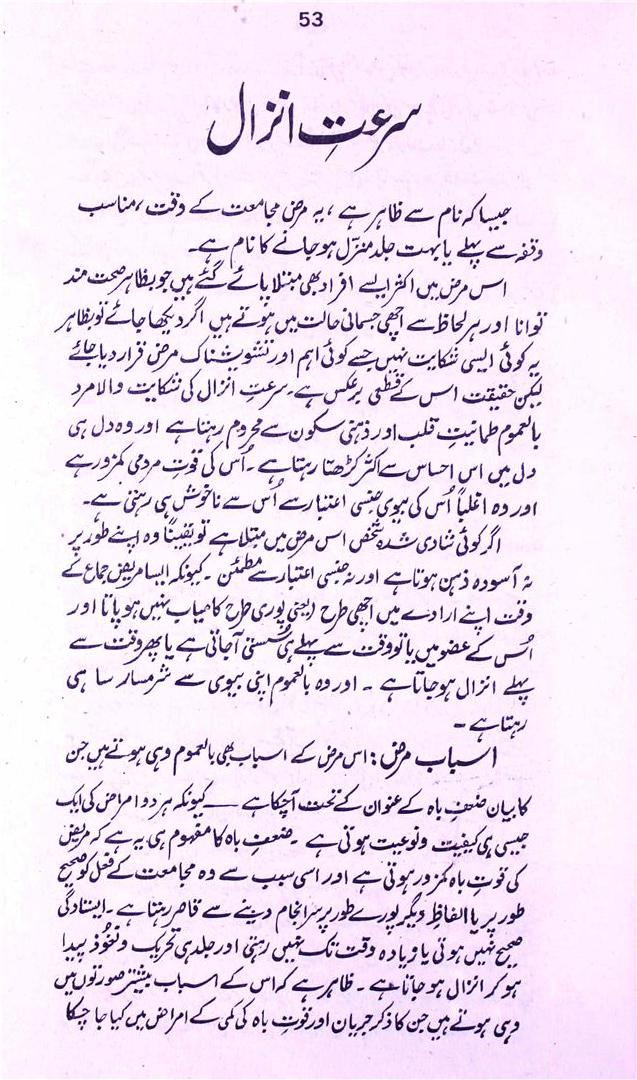 53
سرعتِ انزال
جیسا کہ نام سے ظاہر ہے، یہ مرض مجامعت کے وقت، مناسب
وقفہ سے پہلے یا بہت جلد منزل ہو جانے کا نام ہے۔
اس مرض میں اکثر ایسے افراد بھی مبتلا پائے گئے ہیں جو بظاہر صحت مند
توانا اور ہر لحاظ سے اچھی جسمانی حالت میں ہوتے ہیں اگر دیکھا جائے تو بظاہر
یہ کوئی ایسی شکایت نہیں جسے کوئی اہم اور تشویشناک مرض قرار دیا جائے
لیکن حقیقت اس کے قطعی برعکس ہے۔ سرعتِ انزال کی شکایت والا مرد
بالعموم طمانیتِ قلب اور ذہنی سکون سے محروم رہتا ہے اور وہ دل ہی
دل میں اس احساس سے اکثر کڑھتا رہتا ہے۔ اُس کی قوتِ مردمی کمزور ہے
اور وہ اغلباً اُس کی بیوی جنسی اعتبار سے اُس سے ناخوش ہی رہتی ہے۔
اگر کوئی شادی شدہ شخص اس مرض میں مبتلا ہے تو یقیناً وہ اپنے طور پر
نہ آسودہ ذہن ہوتا ہے اور نہ جنسی اعتبار سے مطمئن۔ کیونکہ ایسا مریض جماع کے
وقت اپنے ارادے میں اچھی طرح (یعنی پوری طرح کامیاب نہیں ہو پاتا اور
اُس کے عضو میں یا تو وقت سے پہلے ہی سُستی آجاتی ہے یا پھر وقت سے
پہلے انزال ہو جاتا ہے۔ اور وہ بالعموم اپنی بیوی سے شرمسار سا ہی
رہتا ہے۔
اسباب مرض: اس مرض کے اسباب بھی بالعموم وہی ہوتے ہیں جن
کا بیان ضعفِ باہ کے عنوان کے تحت آچکا ہے — کیونکہ ہر دو امراض کی ایک
جیسی ہی کیفیت و نوعیت ہوتی ہے۔ ضعفِ باہ کا مفہوم ہی یہ ہے کہ مریض
کی قوتِ باہ کمزور ہوتی ہے اور اسی سبب سے وہ مجامعت کے فعل کو صحیح
طور پر یا بالفاظِ دیگر پورے طور پر سرانجام دینے سے قاصر رہتا ہے۔ ایستادگی
صحیح نہیں ہوتی یا زیادہ وقت تک نہیں رہتی اور جلدی تحریک و نعُوذ پیدا
ہو کر انزال ہو جاتا ہے۔ ظاہر ہے کہ اس کے اسباب بیشتر صورتوں میں
وہی ہوتے ہیں جن کا ذکر جریان اور قوتِ باہ کی کمی کے امراض میں کیا جا چکا